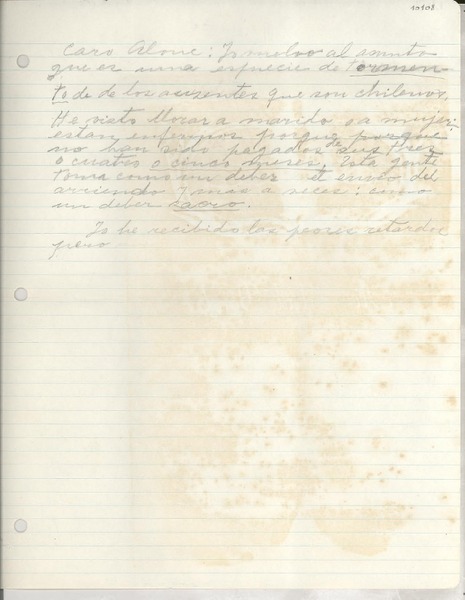 10908
Caro Alone: Yo vuelvo al asunto
que es una especie de tormen-
to de de los ausentes que son chilenos.
He visto llorar a marido o a mujer:
estan enfermos porque porque
no han sido pagados de sus tres
o cuatro o cinco meses. Esta gente
toma como un deber el envío del
arriendo y mas a veces: como
un deber sacro.
Yo he recibido los peores retardos
pero